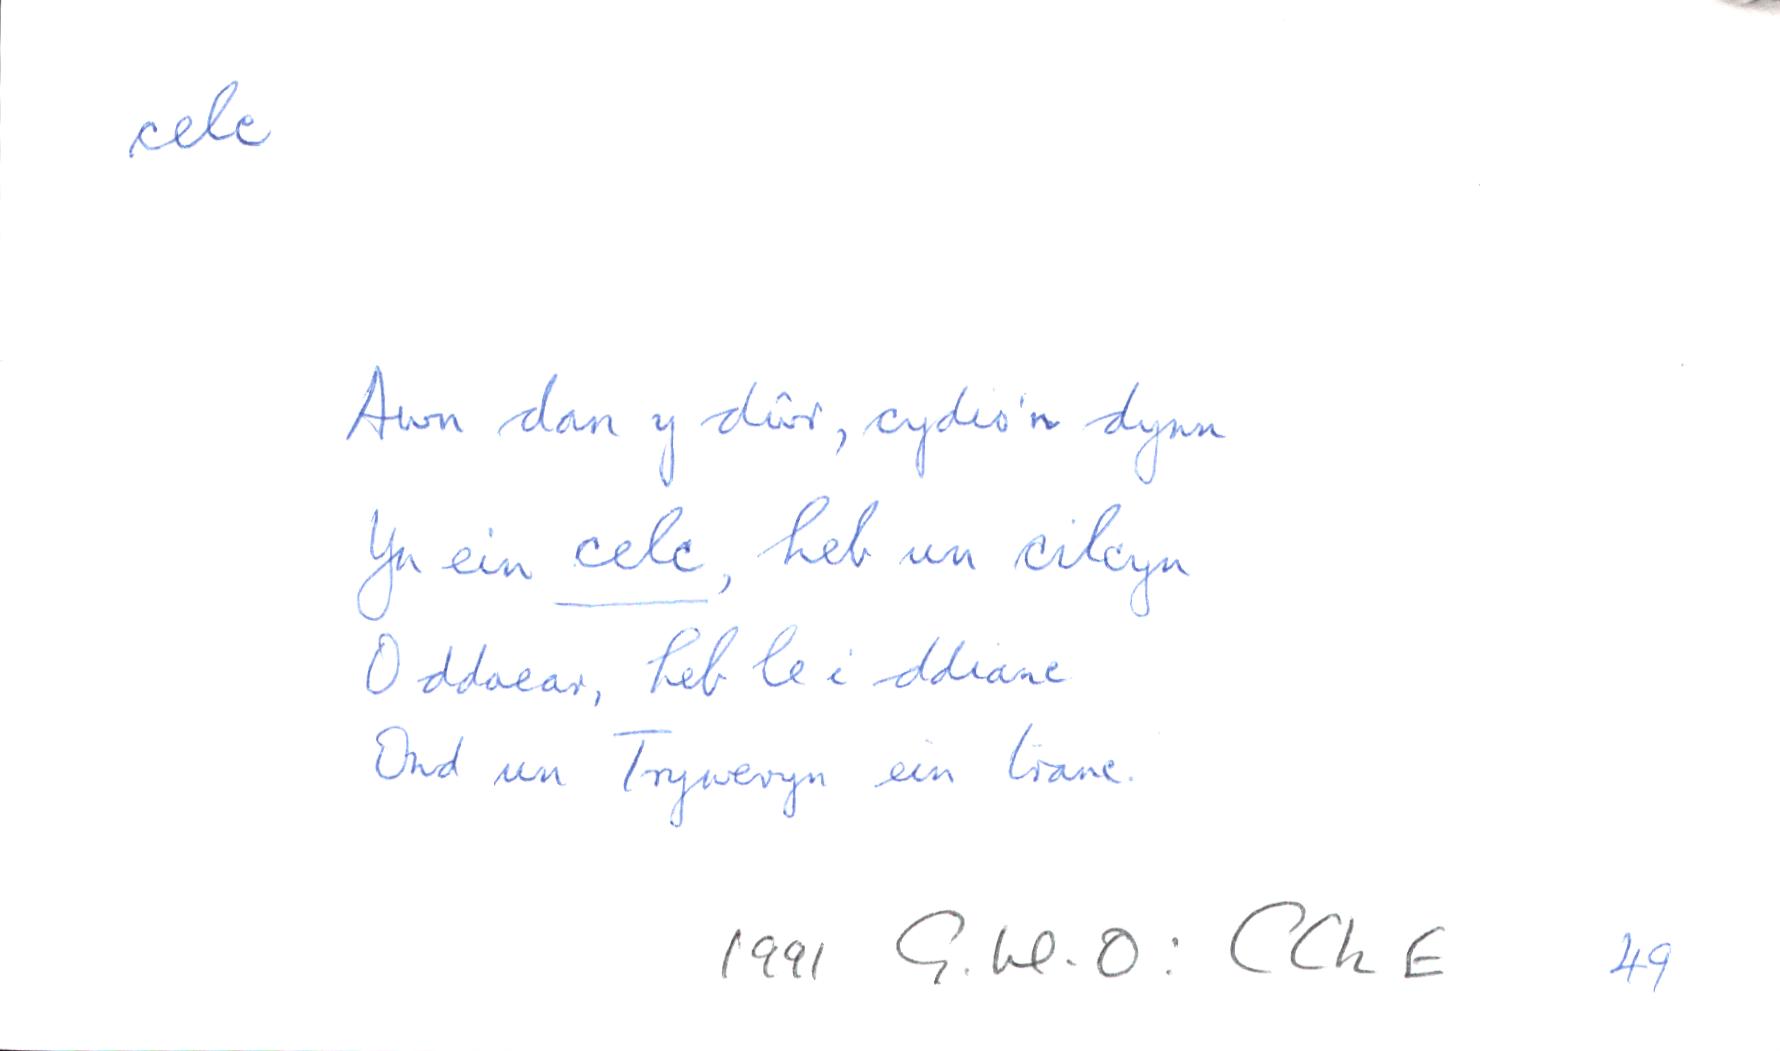 celc
Awn dan y dŵr, cydio'n dynn
Yn ein celc, heb un cilcyn
O ddaear, heb le i ddianc
Ond un Tryweryn ein tranc.
1991 G. W. O: CCh E 49